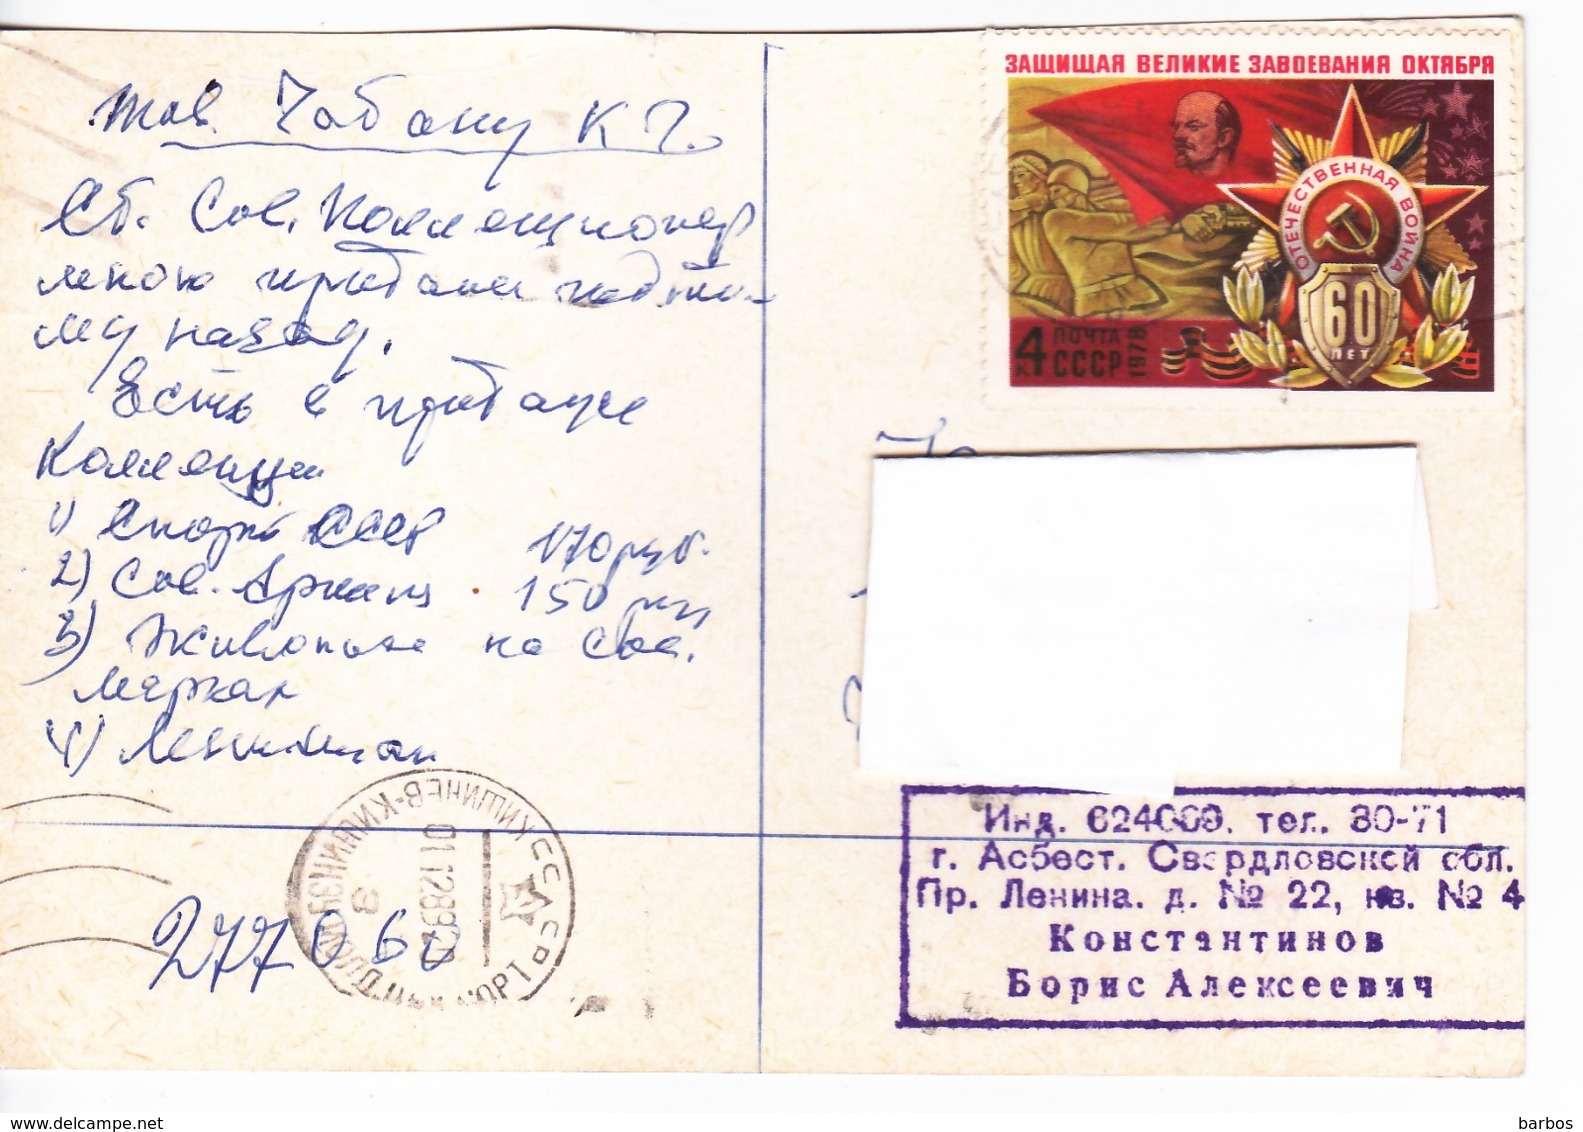 Тов. Чабану К Г.
Сб. Сов. Коллекционер
мною продан
му назад.
Есть в продаже
Коллекции
1) Спорт СССР 170 руб.
2) Сов. 150 руб
3) Живопись на Сов.
Марках
4)
277060
ЗАЩИЩАЯ ВЕЛИКИЕ ЗАВОЕВАНИЯ ОКТЯБРЯ
ОТЕЧЕСТВЕННАЯ ВОЙНА
60
ЛЕТ
4к ПОЧТА СССР 1978
КИШИНЕВ
01 12 89
Инд. 624069. тел. 30-71
г. Асбест. Свердловской обл.
Пр. Ленина. д. № 22, кв. № 4
Константинов
Борис Алексеевич
barbos